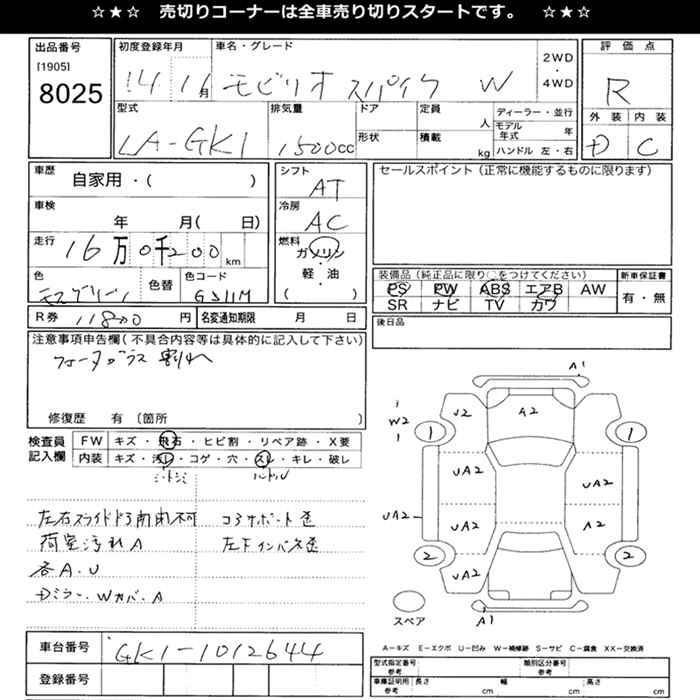 ☆★☆ 売切りコーナーは全車売り切りスタートです。 ☆★☆
出品番号 初度登録年月 車名・グレード 評価点
[1905] 8025 14 11月 モビリオ スパイク W 2WD・4WD R
型式 排気量 ドア 定員 ディーラー・並行 外装 内装
LA-GK1 1500cc 人 モデル年式 年 D C
形状 積載 kg ハンドル 左・右
車歴 自家用・( ) シフト AT セールスポイント (正常に機能するものに限ります)
車検 年 月( 日) 冷房 AC
走行 16万0千200km 燃料 ガソリン・軽・油 ( )
色 モスグリーン 色替 色コード G511M
装備品 (純正品に限り○をつけてください) 新車保証書
PS PW ABS エアB AW 有・無
SR ナビ TV カワ
R券 11800円 名変通知期限 月 日 後日品
注意事項申告欄 (不具合内容等は具体的に記入して下さい)
割れ
修復歴 有 〔箇所 〕
検査員記入欄 FW キズ・飛石・ヒビ割・リペア跡・X要
内装 キズ・汚レ・コゲ・穴・スレ・キレ・破レ
シートシミ ハンドル
左右スライドドア開閉不可 コアサポート歪
荷室汚れA 左下インパネ歪
各A.U
Dミラー.Wカバ.A
A1
W2 1 U2 A2 1
UA2 UA2
UA2 UA2 A2
2 UA2 2
スペア A1
A-キズ E-エクボ U-凹み W-補修跡 S-サビ C-腐食 XX-交換済
車台番号 GK1-1012644
登録番号
型式指定番号 参考 類別区分番号 参考
車庫証明用 参考 長さ cm 幅 cm 高さ cm